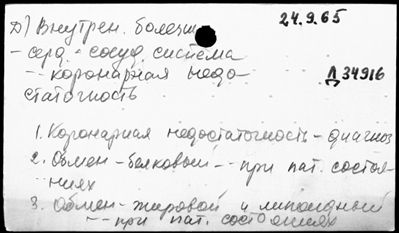 Д) Внутрен. болезн
24.9.65
- серд.-сосуд. система
-- коронарная недо-
статочность
Д 34916
1. Коронарная недостаточность - диагноз
2. Обмен - белковый -- при пат. состоя-
ниях
3. Обмен - жировой и липоидный
-- при пат. состояниях